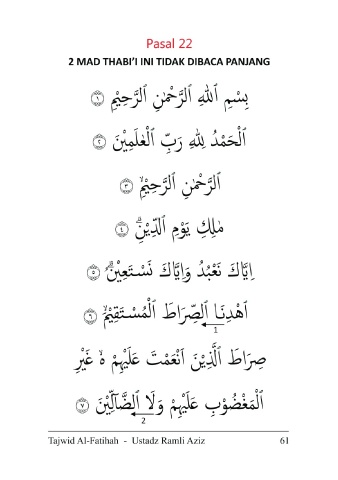 Pasal 22
2 MAD THABI'I INI TIDAK DIBACA PANJANG
بِسْمِ اللّٰهِ الرَّحْمٰنِ الرَّحِيْمِ ۝١
اَلْحَمْدُ لِلّٰهِ رَبِّ الْعٰلَمِيْنَ ۝٢
الرَّحْمٰنِ الرَّحِيْمِۙ ۝٣
مٰلِكِ يَوْمِ الدِّيْنِۗ ۝٤
اِيَّاكَ نَعْبُدُ وَاِيَّاكَ نَسْتَعِيْنُۗ ۝٥
اِهْدِنَا الصِّرَاطَ الْمُسْتَقِيْمَۙ ۝٦
1
صِرَاطَ الَّذِيْنَ اَنْعَمْتَ عَلَيْهِمْ ەۙ غَيْرِ
الْمَغْضُوْبِ عَلَيْهِمْ وَلَا الضَّاۤلِّيْنَ ۝٧
2
Tajwid Al-Fatihah - Ustadz Ramli Aziz 61